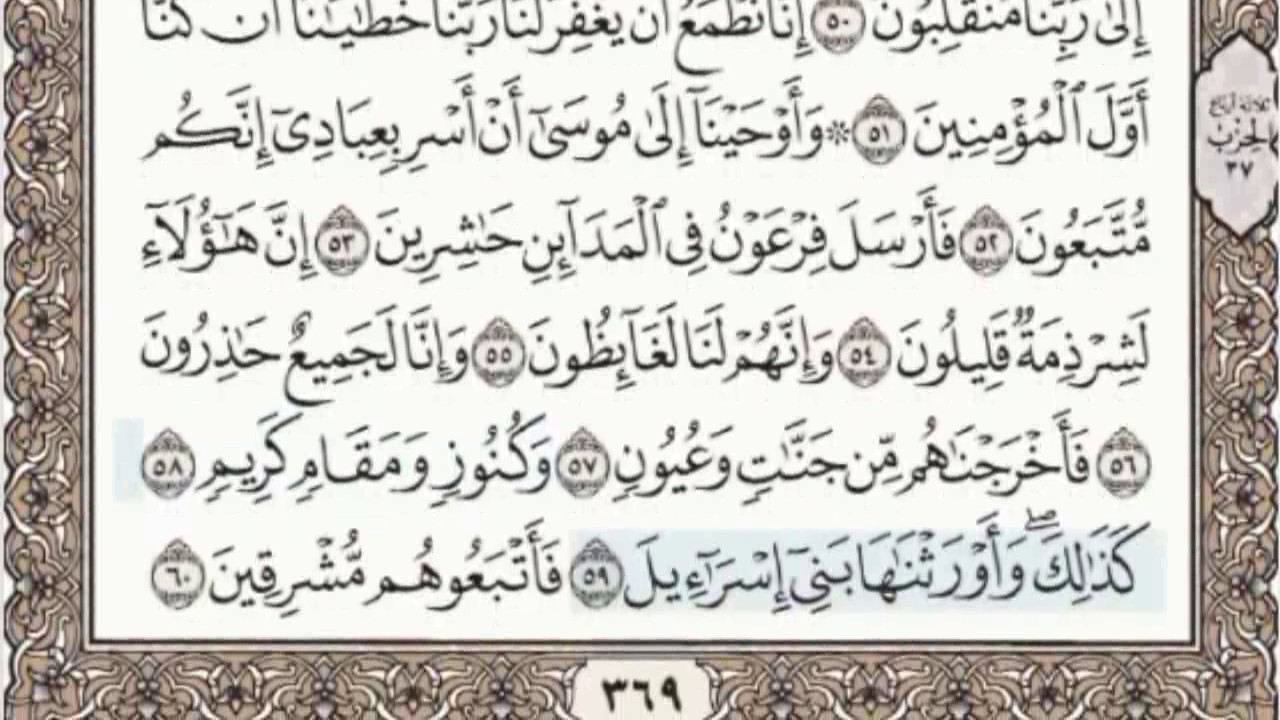 إِلَىٰ رَبِّنَا مُنقَلِبُونَ ٥٠ إِنَّا نَطْمَعُ أَن يَغْفِرَ لَنَا رَبُّنَا خَطَٰيَٰنَآ أَن كُنَّآ
أَوَّلَ ٱلْمُؤْمِنِينَ ٥١ ۞ وَأَوْحَيْنَآ إِلَىٰ مُوسَىٰٓ أَنْ أَسْرِ بِعِبَادِىٓ إِنَّكُم
مُّتَّبَعُونَ ٥٢ فَأَرْسَلَ فِرْعَوْنُ فِى ٱلْمَدَآئِنِ حَٰشِرِينَ ٥٣ إِنَّ هَٰٓؤُلَآءِ
لَشِرْذِمَةٌ قَلِيلُونَ ٥٤ وَإِنَّهُمْ لَنَا لَغَآئِظُونَ ٥٥ وَإِنَّا لَجَمِيعٌ حَٰذِرُونَ
٥٦ فَأَخْرَجْنَٰهُم مِّن جَنَّٰتٍ وَعُيُونٍ ٥٧ وَكُنُوزٍ وَمَقَامٍ كَرِيمٍ ٥٨
كَذَٰلِكَۖ وَأَوْرَثْنَٰهَا بَنِىٓ إِسْرَٰٓءِيلَ ٥٩ فَأَتْبَعُوهُم مُّشْرِقِينَ ٦٠
ثلاثة أرباع
الحزب
٣٧
٣٦٩